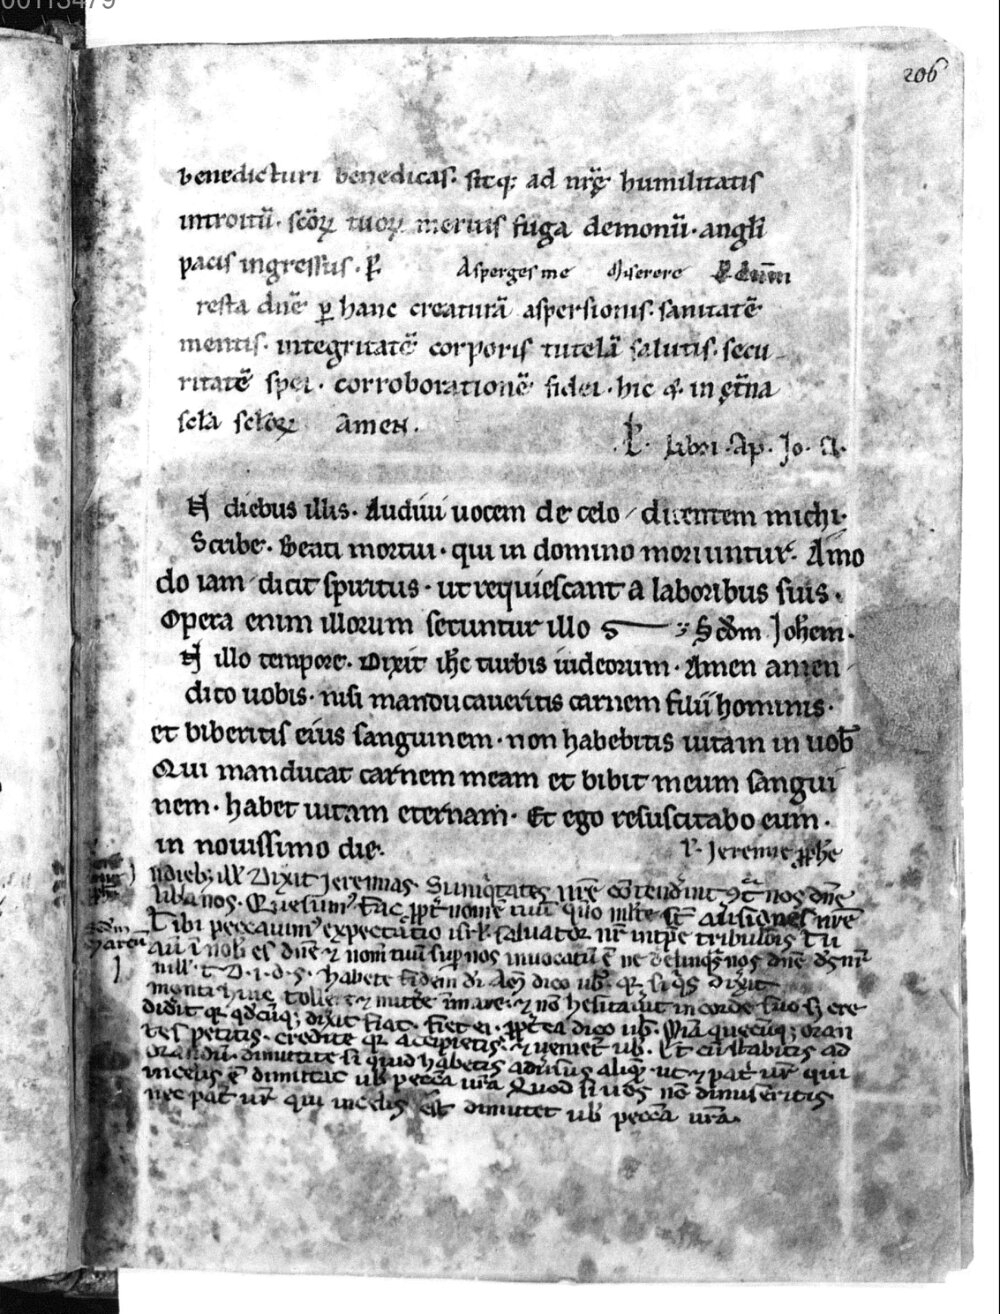 00113479
206
benedicturi benedicas. sitq; ad nr̄ę humilitatis
introitū. sc̄oꝝ tuoꝝ meritis fuga demonū. angl̄i
pacis ingressus. P̄ Asperges me Miserere
resta dn̄e p̱ hanc creaturā aspersionis. sanitatē
mentis. integritatē corporis tutelā salutis. secu
ritatē spei. corroborationē fidei. hic & in et̄na
scl̄a scl̄oꝝ Amen.
L. Libri. Ap. Jo. A.
N diebus illis. Audiui uocem de celo / dicentem michi.
Scribe. Beati mortui. qui in domino moriuntur. Amo
do iam dicit spiritus. ut requiescant a laboribus suis.
Opera enim illorum secuntur illos Scd̄m Joh̄em.
N illo tempore. Dixit ih̄c turbis iudeorum. Amen amen
dico uobis. nisi manducaueritis carnem filii hominis.
et biberitis eius sanguinem. non habebitis uitam in uob̄
Qui manducat carnem meam et bibit meum sangui
nem. habet uitam eternam. Et ego resuscitabo eum.
in nouissimo die. L. Jeremie ꝓph̄e
ndieb; ill̄ Dixit Jeremias. Si iniq̄tates nr̄e nos dn̄e
lib̄a nos. fac nom̄e tuū
Tibi peccauim᷒ expectatio isr̄l saluator nr̄ in tp̄e tribul̄ois Tu
aū ī nob̄ es dn̄e ⁊ nom̄ tuū sup̱ nos inuocatū ē ne nos dn̄e ds̄ nr̄
Habete fidem di. Am̄ dico uob̄. q̄ siq̄s dix̄it
monti huic tolle. ⁊ mitt̄e ī mare. ⁊ nō hesitau̅it in corde suo s; cre
did̄it dix̄it fiat. fiet ei. dico uob̄. oran
tes petitis. credite q̄ accipietis. ⁊ ueniet uob̄. Et cū stabitis ad
orandū. dimittite si quid habetis adūsus aliq̄. ut ⁊ pat̄ ur̄ qui
in celis ē dimittat uob̄ pecc̄a ur̄a Quod si uos nō dimiseritis
nec pat̄ ur̄ qui in celis est dimittet uob̄ pecc̄a ur̄a.